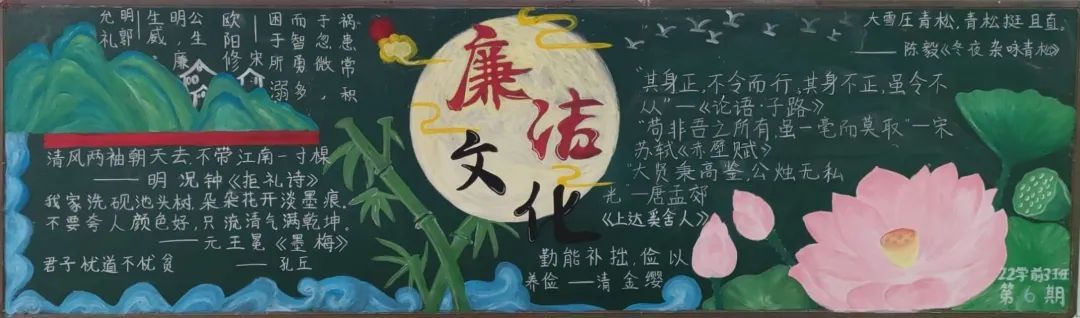 祸患常积
于忽微,
而智勇多
困于所溺
——宋
欧阳修
公生
明,廉
生威,
明郭
允礼
清风两袖朝天去,不带江南一寸棉
——明 况钟《拒礼诗》
我家洗砚池头树,朵朵花开淡墨痕。
不要夸人颜色好,只流清气满乾坤。
——元王冕《墨梅》
君子忧道不忧贫 ——孔丘
廉洁
文化
大雪压青松,青松挺且直。
——陈毅《冬夜杂咏青松》
"其身正,不令而行,其身不正,虽令不
从"—《论语·子路》
"苟非吾之所有,虽一毫而莫取"—宋
苏轼《赤壁赋》
"大贤秉高鉴,公烛无私
光"—唐孟郊
《上达奚舍人》
勤能补拙,俭以
养俭——清 金缨
22学前3班
第6期